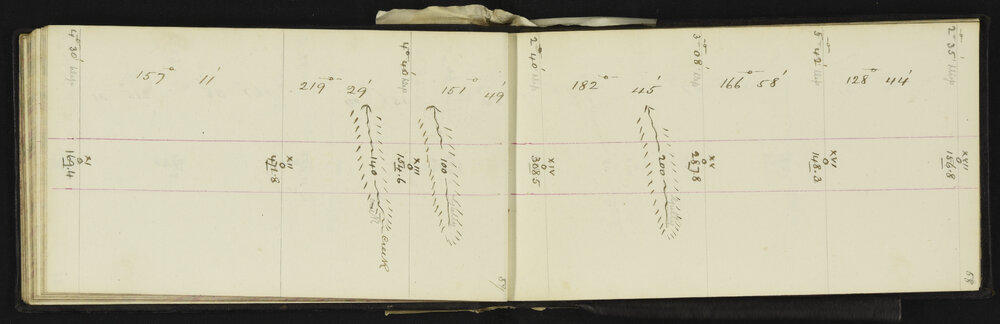 4° 30'
157° 11'
XI
169.4
219° 29'
XII
471.8
4° 40'
XIII
154.6
140
creek
151° 49'
100
57
2° 40'
182° 45'
XIV
308.5
200
3° 08'
166° 58'
XV
287.8
5° 42'
128° 44'
XVI
148.3
2° 35'
XVII
156.8
58